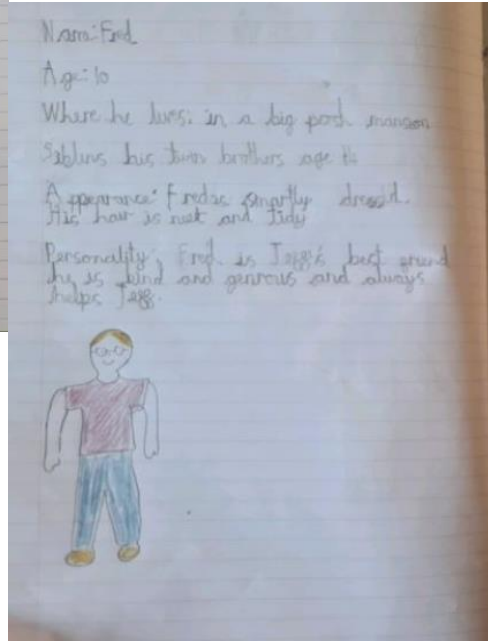 Name: Fred
Age: 10
Where he lives: in a big posh manson
Siblins his twin brothers age
Appearance: Fred is smartly dressd.
His hair is neat and tidy
Personality; Fred is Jeff's best friend
he is kind and genrous and always
helps Jeff.